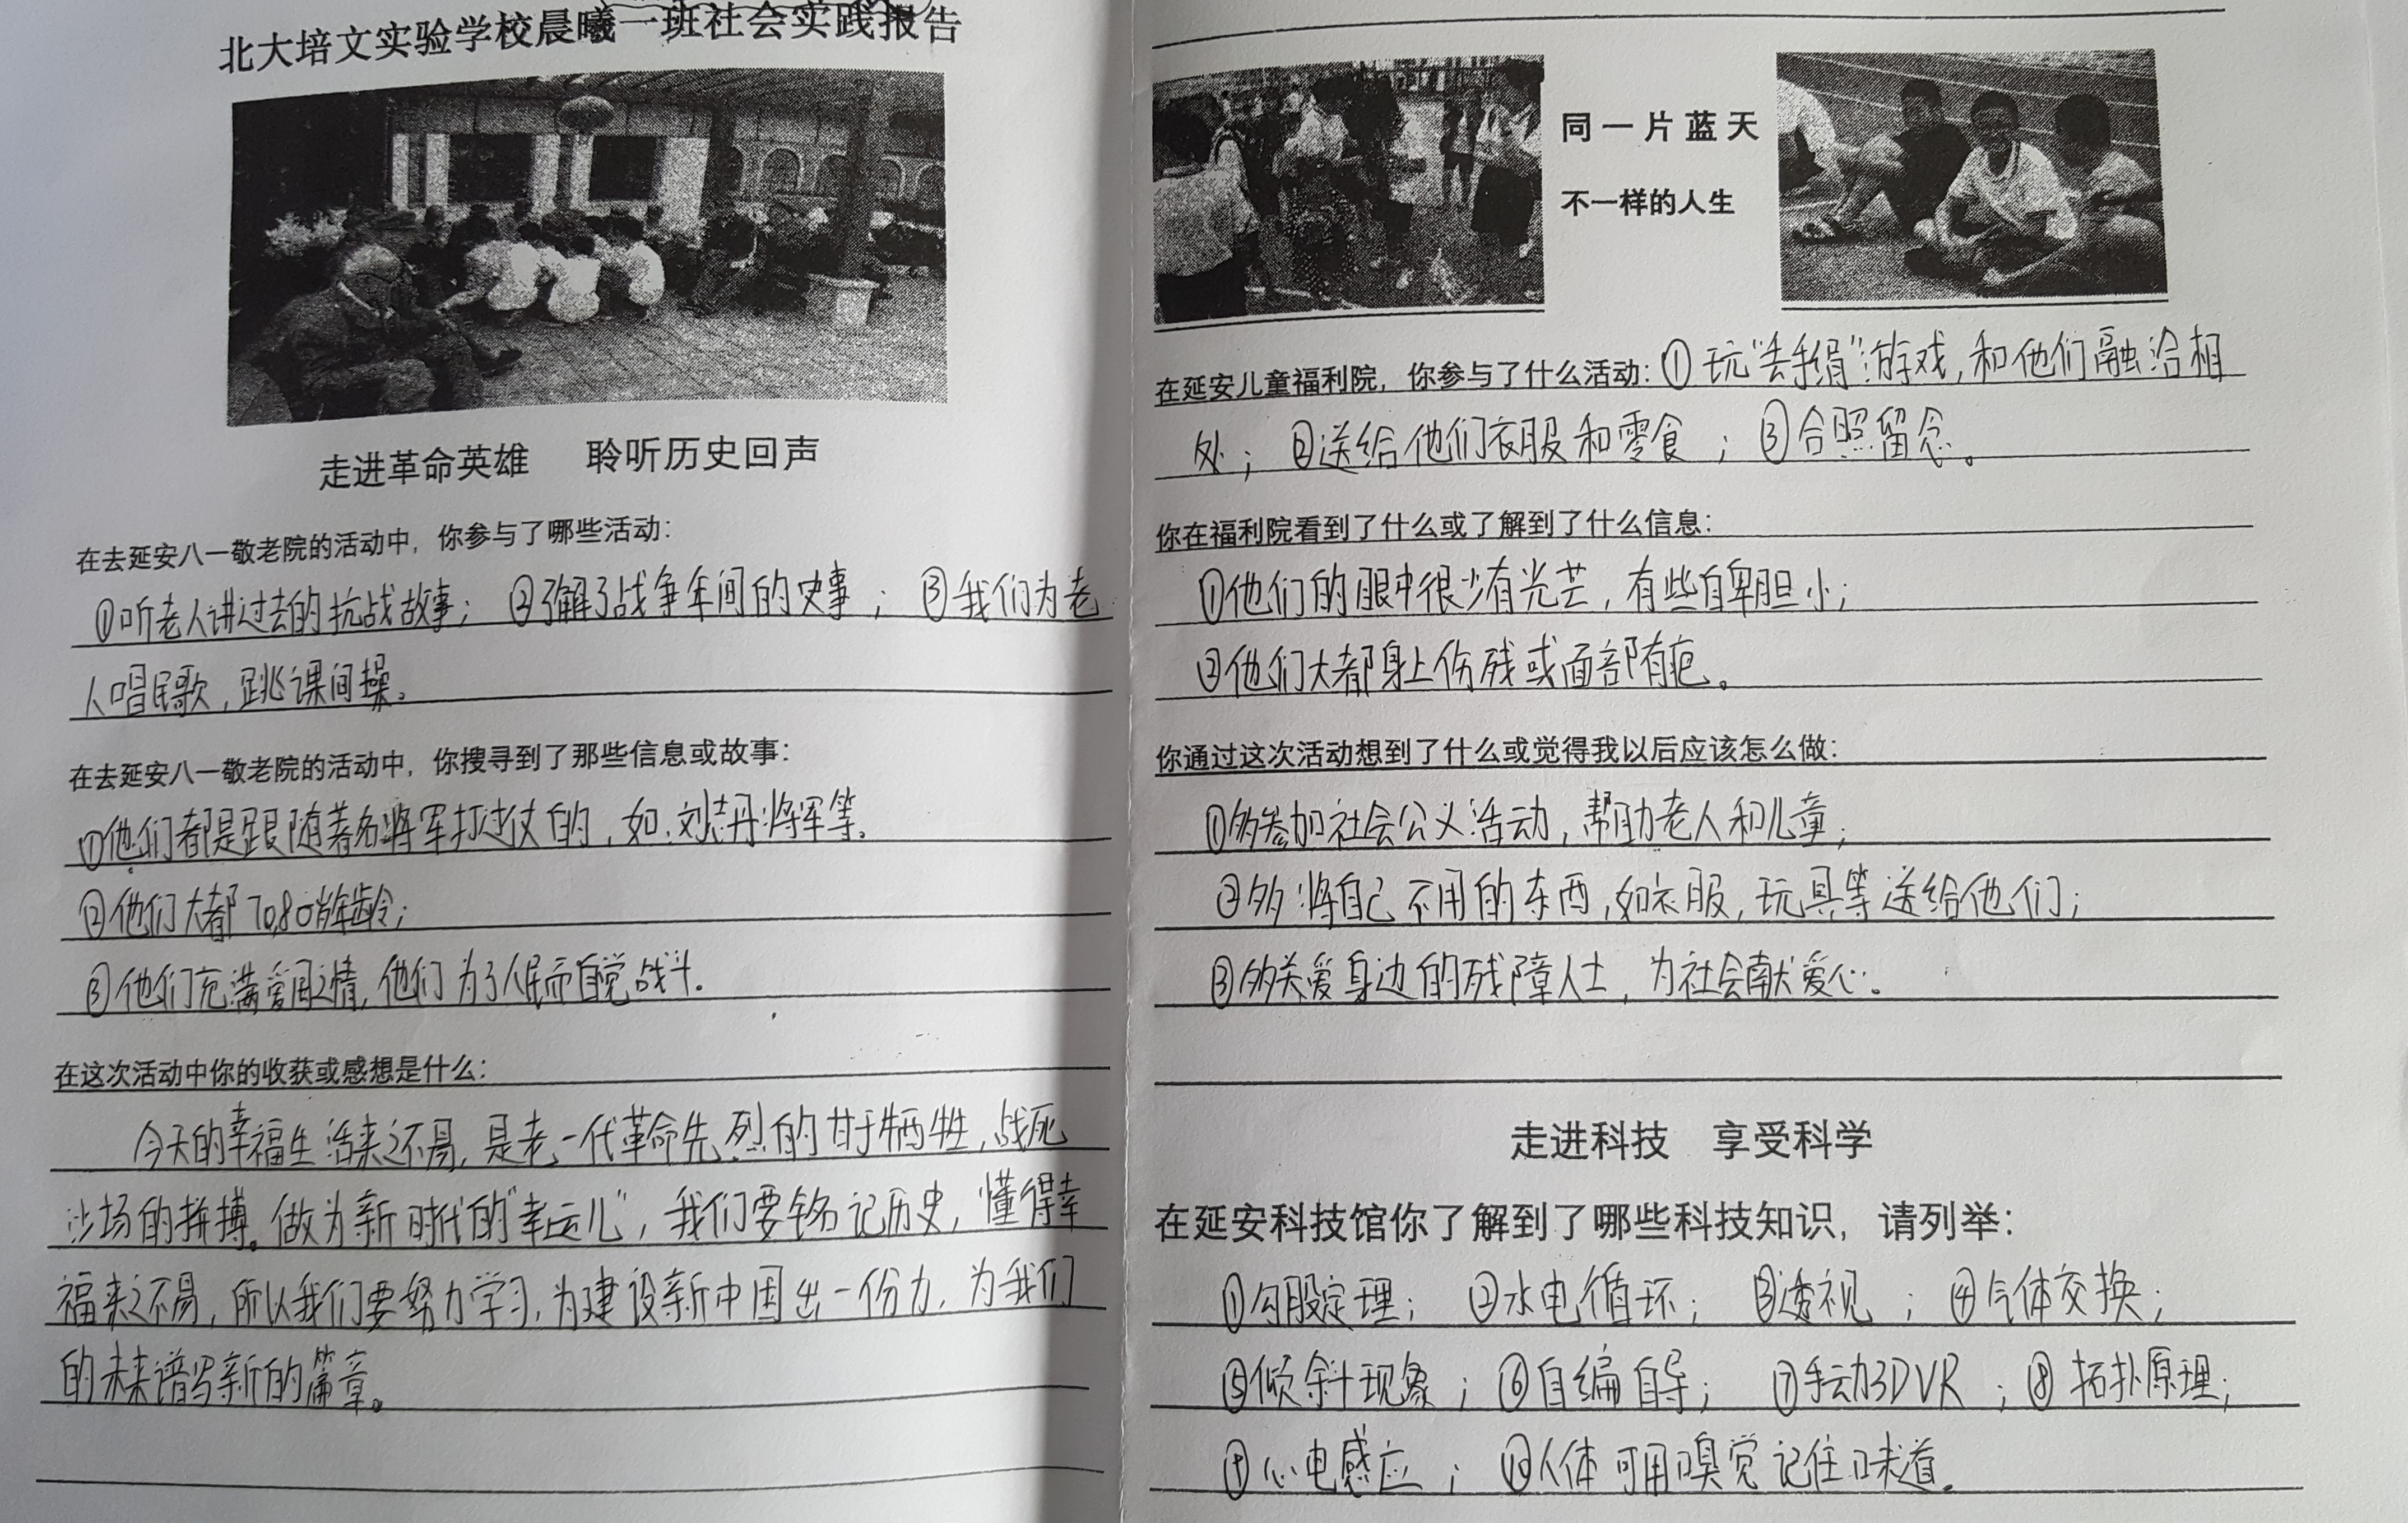 北大培文实验学校晨曦一班社会实践报告
走进革命英雄 聆听历史回声
在去延安八一敬老院的活动中，你参与了哪些活动：
①听老人讲过去的抗战故事；②了解了战争年间的史事；③我们为老
人唱民歌，跳课间操。
在去延安八一敬老院的活动中，你搜寻到了那些信息或故事：
①他们都是跟随著名将军打过仗的，如，刘志丹将军等。
②他们大都70,80岁年龄；
③他们充满爱国之情，他们为了人民而自觉战斗.
在这次活动中你的收获或感想是什么：
今天的幸福生活来之不易，是老一代革命先烈的甘于牺牲，战死
沙场的拼搏。做为新时代的“幸运儿”，我们要铭记历史，懂得幸
福来之不易，所以我们要努力学习，为建设新中国出一份力，为我们
的未来谱写新的篇章。
同一片蓝天
不一样的人生
在延安儿童福利院，你参与了什么活动：①玩“丢手绢”游戏，和他们融洽相
处；②送给他们衣服和零食；③合照留念。
你在福利院看到了什么或了解到了什么信息：
①他们的眼中很少有光芒，有些自卑胆小；
②他们大都身上伤残或面部有疤。
你通过这次活动想到了什么或觉得我以后应该怎么做：
①多参加社会公义活动，帮助老人和儿童；
②多将自己不用的东西，如衣服，玩具等送给他们；
③多关爱身边的残障人士，为社会献爱心。
走进科技 享受科学
在延安科技馆你了解到了哪些科技知识，请列举：
①勾股定理；②水电循环；③透视；④气体交换；
⑤倾斜现象；⑥自编自导；⑦手动3DVR；⑧拓扑原理；
⑨心电感应；⑩人体可用嗅觉记住味道。